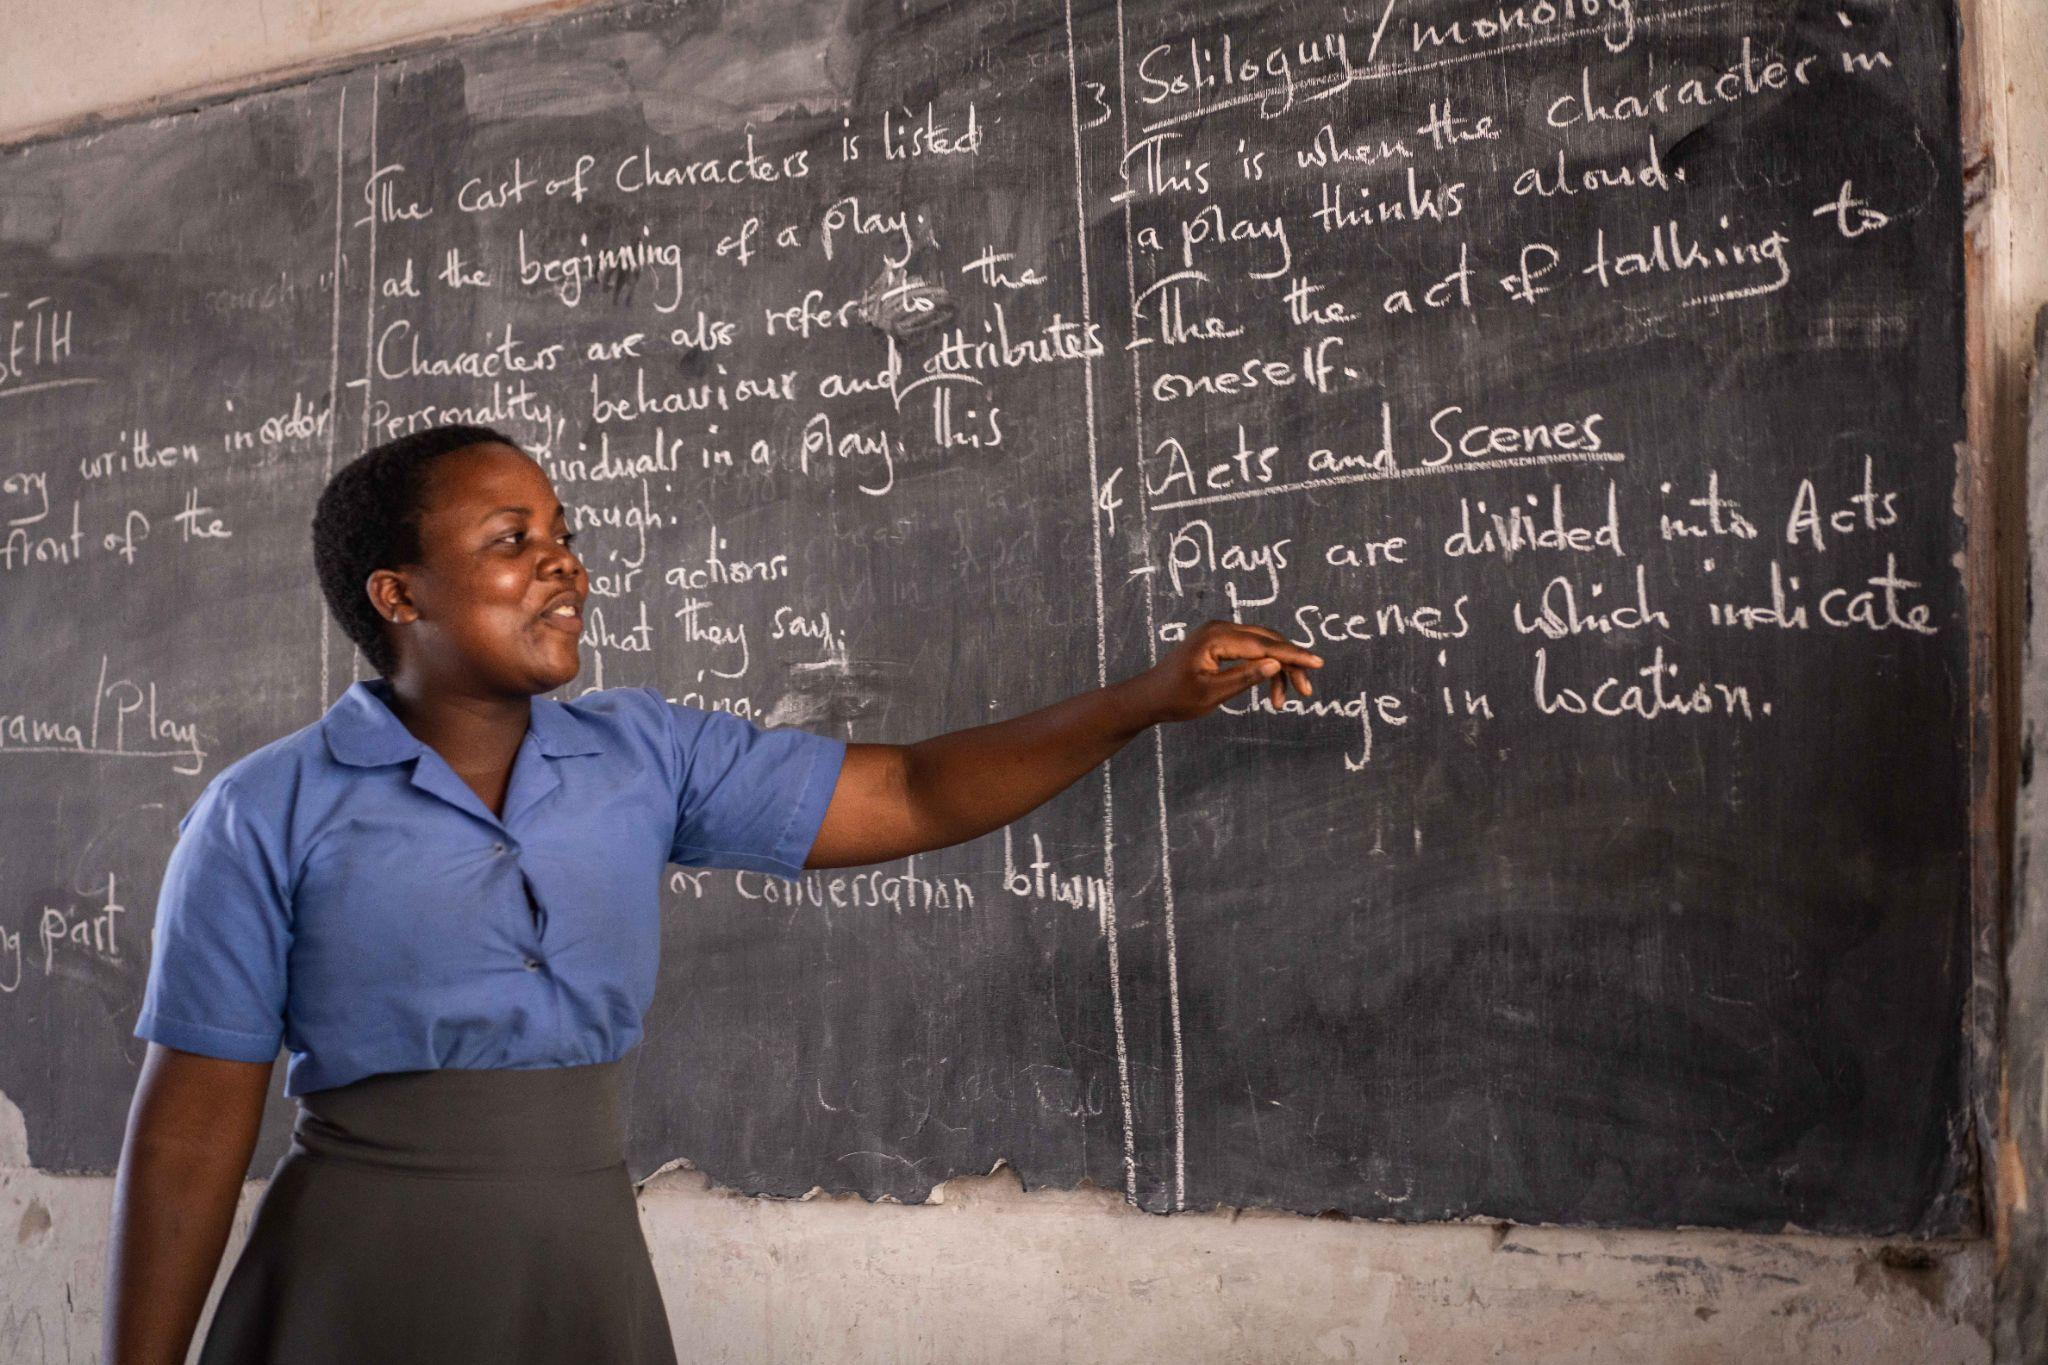 ory written in order
front of the
rama/Play
g part
- The Cast of Characters is listed
at the beginning of a play.
- Characters are also refer to the
Personality, behaviour and attributes
individuals in a play. This
rough:
eir actions.
what they say.
or Conversation btwn
3 Soliloguy/monolog
- This is when the character in
a play thinks aloud.
- The the act of talking to
oneself.
4 Acts and Scenes
- Plays are divided into Acts
scenes which indicate
change in location.